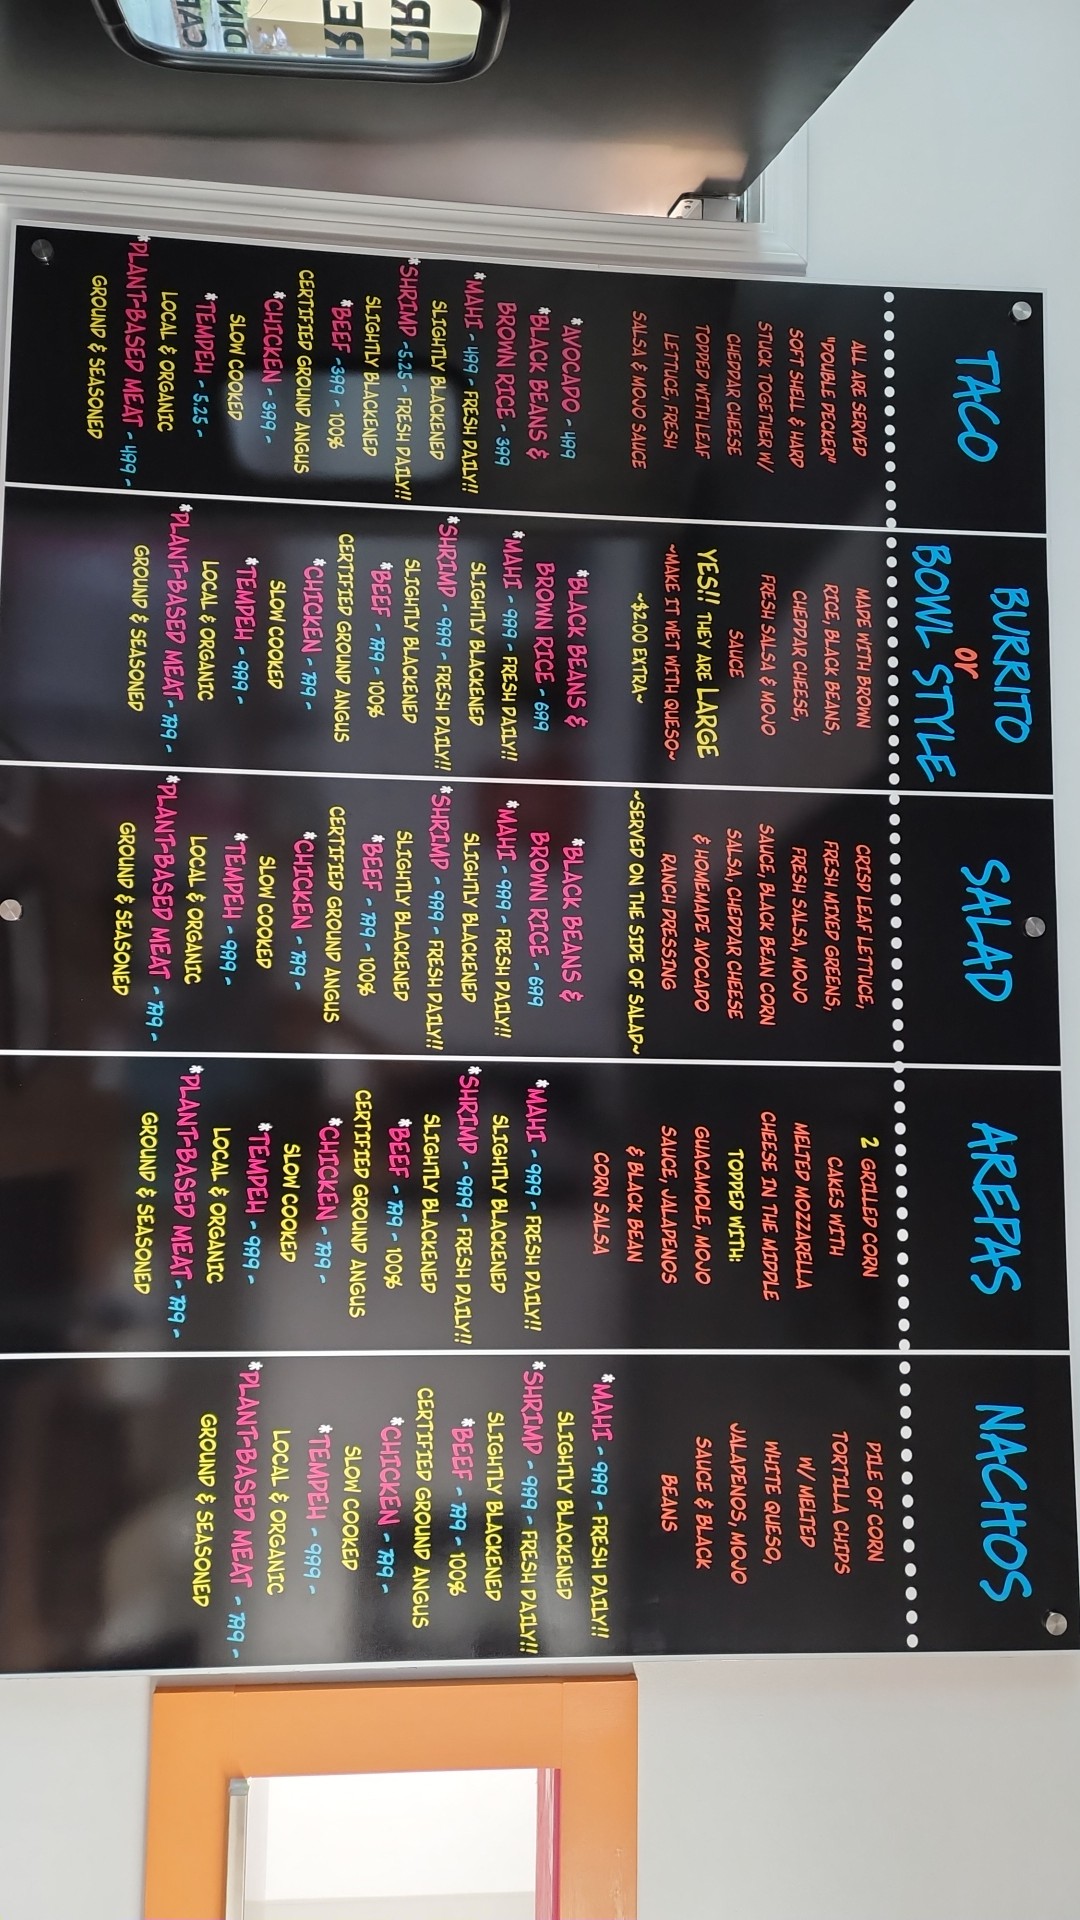 TACO
ALL ARE SERVED
"DOUBLE DECKER"
SOFT SHELL & HARD
STUCK TOGETHER W/
CHEDDAR CHEESE
TOPPED WITH LEAF
LETTUCE, FRESH
SALSA & MOJO SAUCE
*AVOCADO - 4.99
*BLACK BEANS &
BROWN RICE - 3.99
*MAHI - 4.99 - FRESH DAILY!!
SLIGHTLY BLACKENED
*SHRIMP - 5.25 - FRESH DAILY!!
SLIGHTLY BLACKENED
*BEEF - 3.99 - 100%
CERTIFIED GROUND ANGUS
*CHICKEN - 3.99 -
SLOW COOKED
*TEMPEH - 5.25 -
LOCAL & ORGANIC
*PLANT-BASED MEAT - 4.99 -
GROUND & SEASONED
BURRITO
or
BOWL STYLE
MADE WITH BROWN
RICE, BLACK BEANS,
CHEDDAR CHEESE,
FRESH SALSA & MOJO
SAUCE
YES!! THEY ARE LARGE
~MAKE IT WET WITH QUESO~
~$2.00 EXTRA~
*BLACK BEANS &
BROWN RICE - 6.99
*MAHI - 9.99 - FRESH DAILY!!
SLIGHTLY BLACKENED
*SHRIMP - 9.99 - FRESH DAILY!!
SLIGHTLY BLACKENED
*BEEF - 7.99 - 100%
CERTIFIED GROUND ANGUS
*CHICKEN - 7.99 -
SLOW COOKED
*TEMPEH - 9.99 -
LOCAL & ORGANIC
*PLANT-BASED MEAT - 7.99 -
GROUND & SEASONED
SALAD
CRISP LEAF LETTUCE,
FRESH MIXED GREENS,
FRESH SALSA, MOJO
SAUCE, BLACK BEAN CORN
SALSA, CHEDDAR CHEESE
& HOMEMADE AVOCADO
RANCH DRESSING
~SERVED ON THE SIDE OF SALAD~
*BLACK BEANS &
BROWN RICE - 6.99
*MAHI - 9.99 - FRESH DAILY!!
SLIGHTLY BLACKENED
*SHRIMP - 9.99 - FRESH DAILY!!
SLIGHTLY BLACKENED
*BEEF - 7.99 - 100%
CERTIFIED GROUND ANGUS
*CHICKEN - 7.99 -
SLOW COOKED
*TEMPEH - 9.99 -
LOCAL & ORGANIC
*PLANT-BASED MEAT - 7.99 -
GROUND & SEASONED
AREPAS
2 GRILLED CORN
CAKES WITH
MELTED MOZZARELLA
CHEESE IN THE MIDDLE
TOPPED WITH:
GUACAMOLE, MOJO
SAUCE, JALAPENOS
& BLACK BEAN
CORN SALSA
*MAHI - 9.99 - FRESH DAILY!!
SLIGHTLY BLACKENED
*SHRIMP - 9.99 - FRESH DAILY!!
SLIGHTLY BLACKENED
*BEEF - 7.99 - 100%
CERTIFIED GROUND ANGUS
*CHICKEN - 7.99 -
SLOW COOKED
*TEMPEH - 9.99 -
LOCAL & ORGANIC
*PLANT-BASED MEAT - 7.99 -
GROUND & SEASONED
NACHOS
PILE OF CORN
TORTILLA CHIPS
W/ MELTED
WHITE QUESO,
JALAPENOS, MOJO
SAUCE & BLACK
BEANS
*MAHI - 9.99 - FRESH DAILY!!
SLIGHTLY BLACKENED
*SHRIMP - 9.99 - FRESH DAILY!!
SLIGHTLY BLACKENED
*BEEF - 7.99 - 100%
CERTIFIED GROUND ANGUS
*CHICKEN - 7.99 -
SLOW COOKED
*TEMPEH - 9.99 -
LOCAL & ORGANIC
*PLANT-BASED MEAT - 7.99 -
GROUND & SEASONED